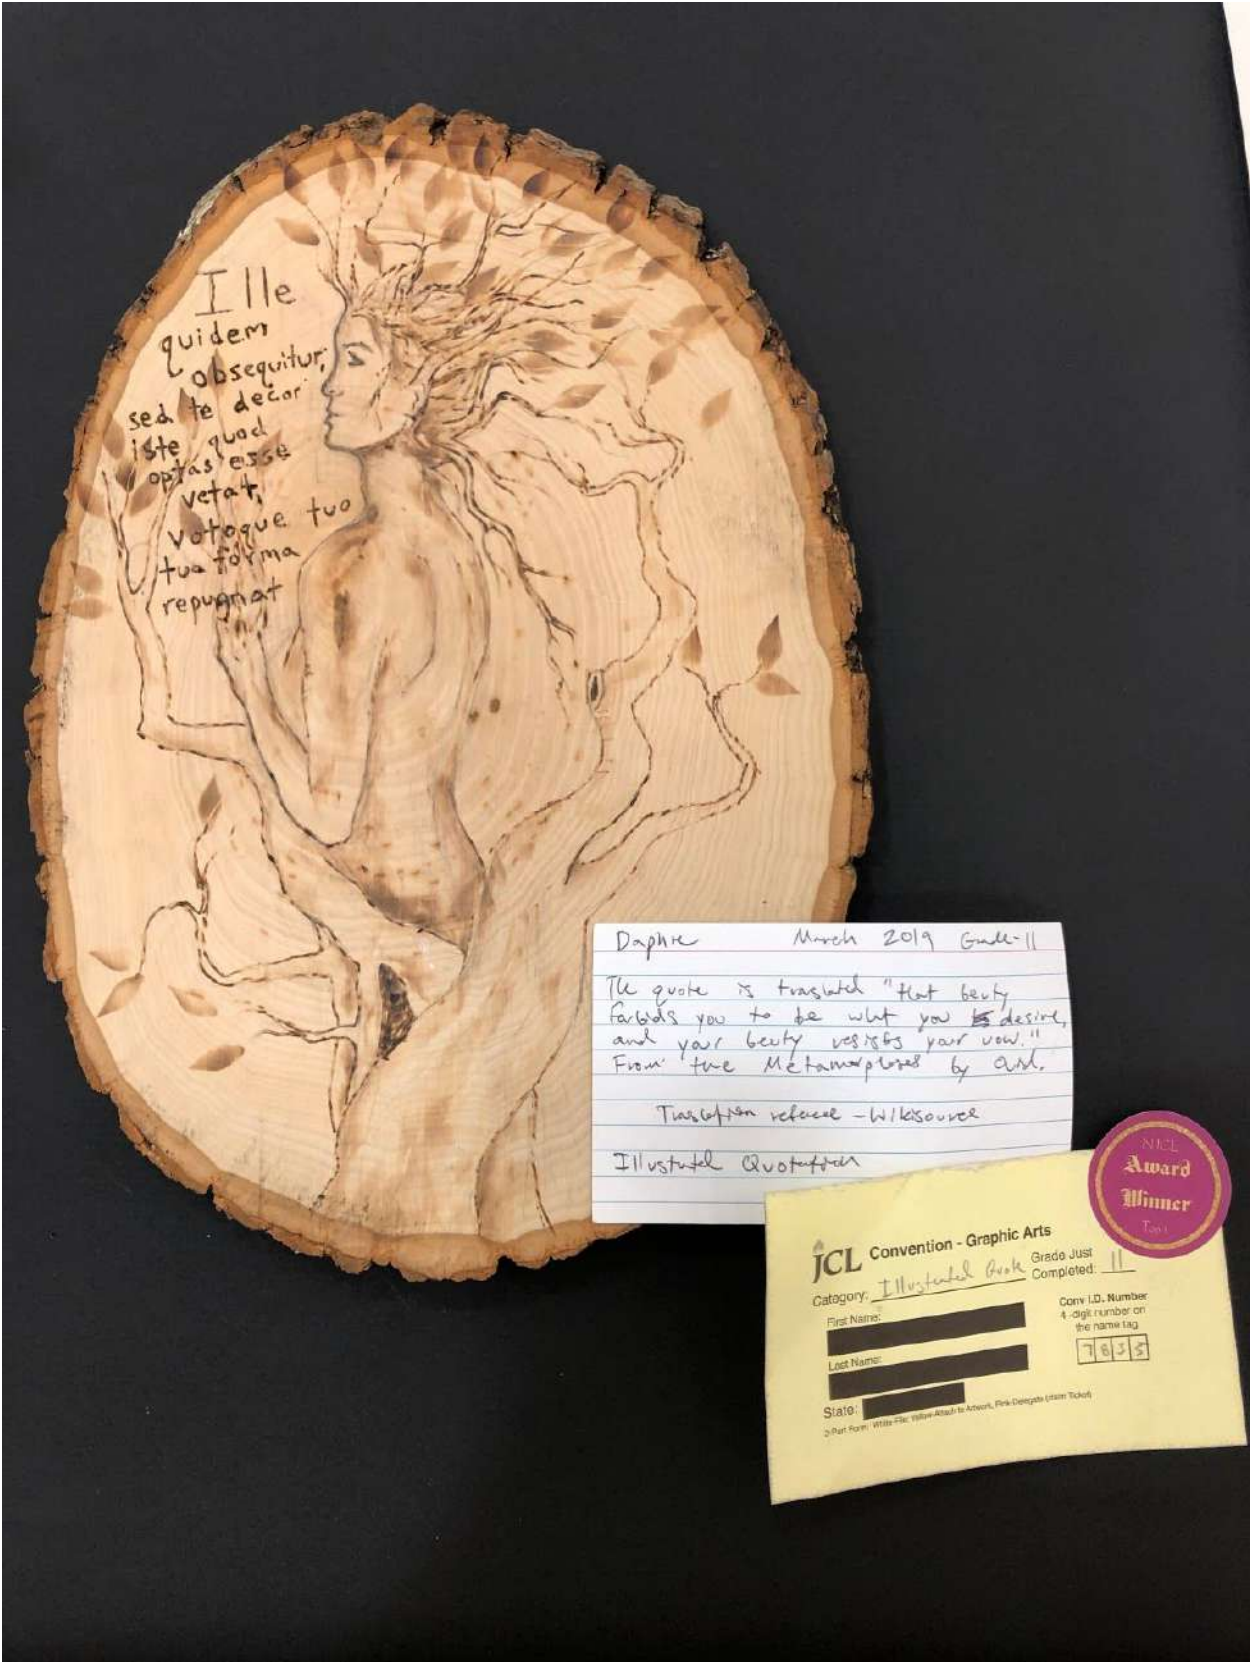 Ille
quidem
obsequitur,
sed te decor
iste quod
optas esse
vetat,
votoque tuo
tua forma
repugnat
Daphne March 2019 Grade-11
The quote is translated "that beuty
forbids you to be what you desire,
and your beuty resists your vow."
From the Metamorphoses by Ovid.
Translation reference - Wikisource
Illustrated Quotation
NJCL
Award
Winner
JCL Convention - Graphic Arts
Category: Illustrated Quote Grade Just
Completed: 11
First Name:
Last Name:
State:
Conv I.D. Number
4-digit number on
the name tag
7835
3-Part Form: White-File; Yellow-Attach to Artwork, Pink-Delegate (claim Ticket)